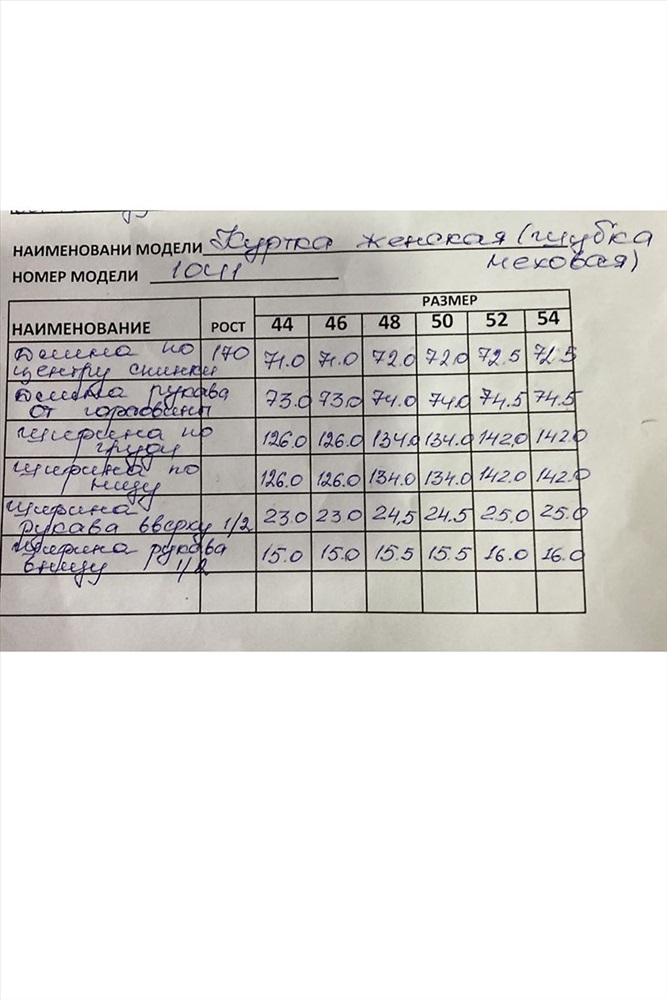 НАИМЕНОВАНИ МОДЕЛИ Куртка женская (шубка
меховая)
НОМЕР МОДЕЛИ
НАИМЕНОВАНИЕ РОСТ РАЗМЕР
44 46 48 50 52 54
Длина по 170 71.0 71.0 72.0 72.0 72.5 72.5
центру спинки
Длина рукава 73.0 73.0 74.0 74.0 74.5 74.5
от горловины
Ширина по 126.0 126.0 134.0 134.0 142.0 142.0
груди
Ширина по 126.0 126.0 134.0 134.0 142.0 142.0
низу
Ширина 23.0 23.0 24,5 24.5 25.0 25.0
рукава вверху 1/2
Ширина рукава 15.0 15.0 15.5 15.5 16.0 16.0
внизу 1/2